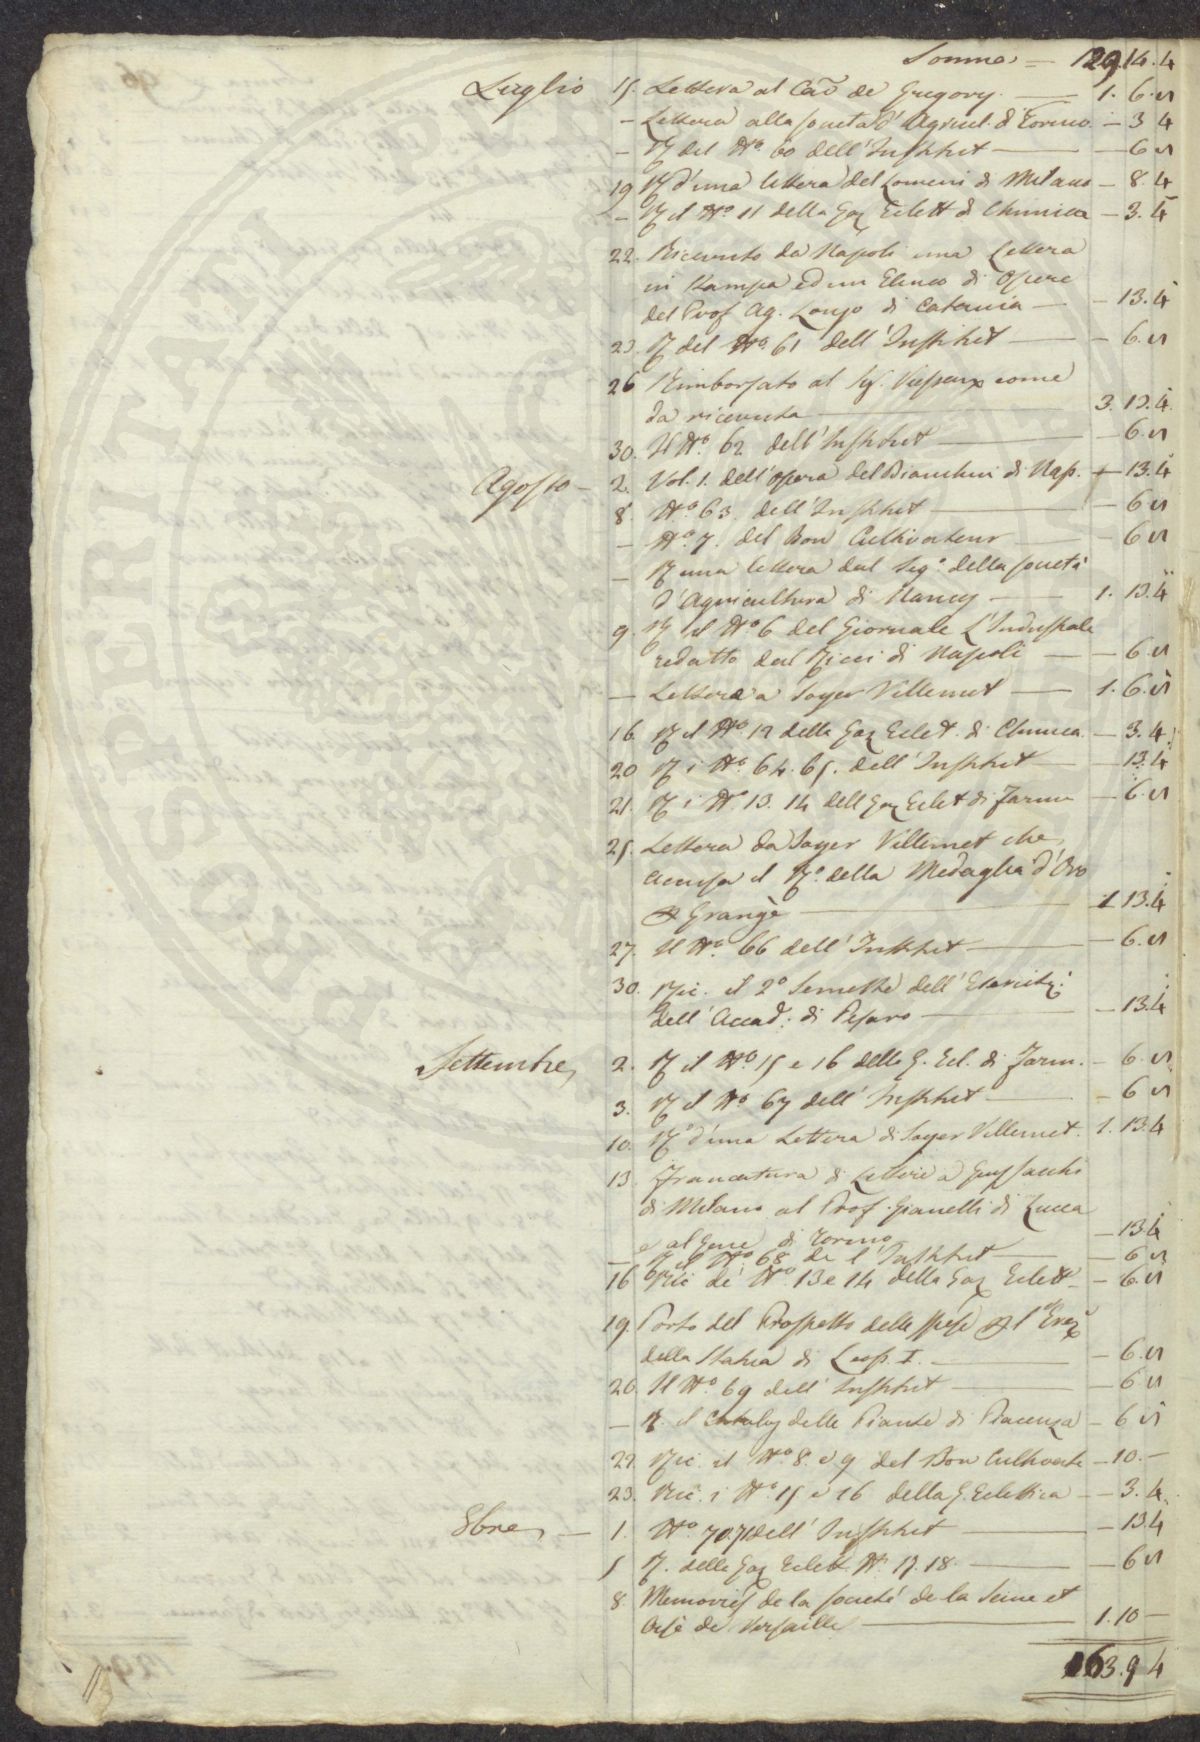 Somma = 129.14.4
Luglio 15. Lettera al Cav de Gregory. — 1. 6. 8
– Lettera alla Società d'Agricul. di Torino — 3 4
– R del N.º 60 dell'Institut — 6 8
19 R d'una lettera del Lomeni di Milano — 8. 4
– R il N.º 11 della Gaz Eclett di Chimica — 3. 4
22. Ricevuto da Napoli una Lettera
in Stampa ed un Elenco di Opere
del Prof Ag. Longo di Catania — 13. 4
23. R del N.º 61 dell'Institut — 6. 8
26 Rimborsato al Sig. Viesseux come
da ricevuta — 3. 13. 4
30. Il N.º 62 dell'Institut — 6. 8
Agosto – 2. Vol. 1. dell'opera del Bianchini di Nap. — 13. 4
8. N.º 63. dell'Institut — 6 8
– N.º 7. del Bon Cultivateur — 6 8
– R una lettera dal Seg.º della Società
d'Agricultura di Nancy — 1. 13. 4
9. R il N.º 6 del Giornale L'Industriale
redatto dal Ricci di Napoli — 6. 8
– Lettera a Soyer Villemet — 1. 6. 8
16. R il N.º 12 della Gaz Eclet. di Chimica. — 3. 4
20 R i N.º 64. 65. dell'Institut — 13. 4
21. R i N. 13. 14 dell Gaz Eclet di Farm — 6. 8
25. Lettera da Soyer Villemet che
accusa il R.º della Medaglia d'Oro
Grangè — 1 13. 4
27. Il N.º 66 dell'Institut — 6. 8
30. Ric. il 2º Semestre dell'Esercitz:
dell'Accad. di Pesaro — 13. 4
Settembre 2. R il N.º 15 e 16 della G. Ecl. di Farm. – 6. 8
3. R il N.º 67 dell'Institut — 6 8
10. R.º d'una Lettera di Soyer Villemet. 1. 13. 4
13. Francatura di Lettere a
di Milano al Prof. Gianelli di Lucca
e al Gene di Torino — 13. 4
– R il N.º 68 de l'Institut — 6 8
16 Ric de' N.º 13 e 14 della Gaz Eclett – 6. 8
19. Porto del Prospetto delle spese l'Erez
della Statua di Leop. I. — 6. 8
20. Il N.º 69 dell'Institut — 6 8
– R. il Catalog delle Piante di Piacenza – 6 8
22. Ric. il N.º 8. e 9 del Bon Cultivate – 10. –
23. Ric. i N.º 15 e 16 della G. Eclettica — 3. 4.
8bre – 1. N.º 70. 71 dell'Institut — 13 4
5 R. della Gaz Eclett. N. 17. 18. — 6 8
8 Memories de la Société de la Seine et
Oise de Versailles — 1. 10 –
163. 9 4